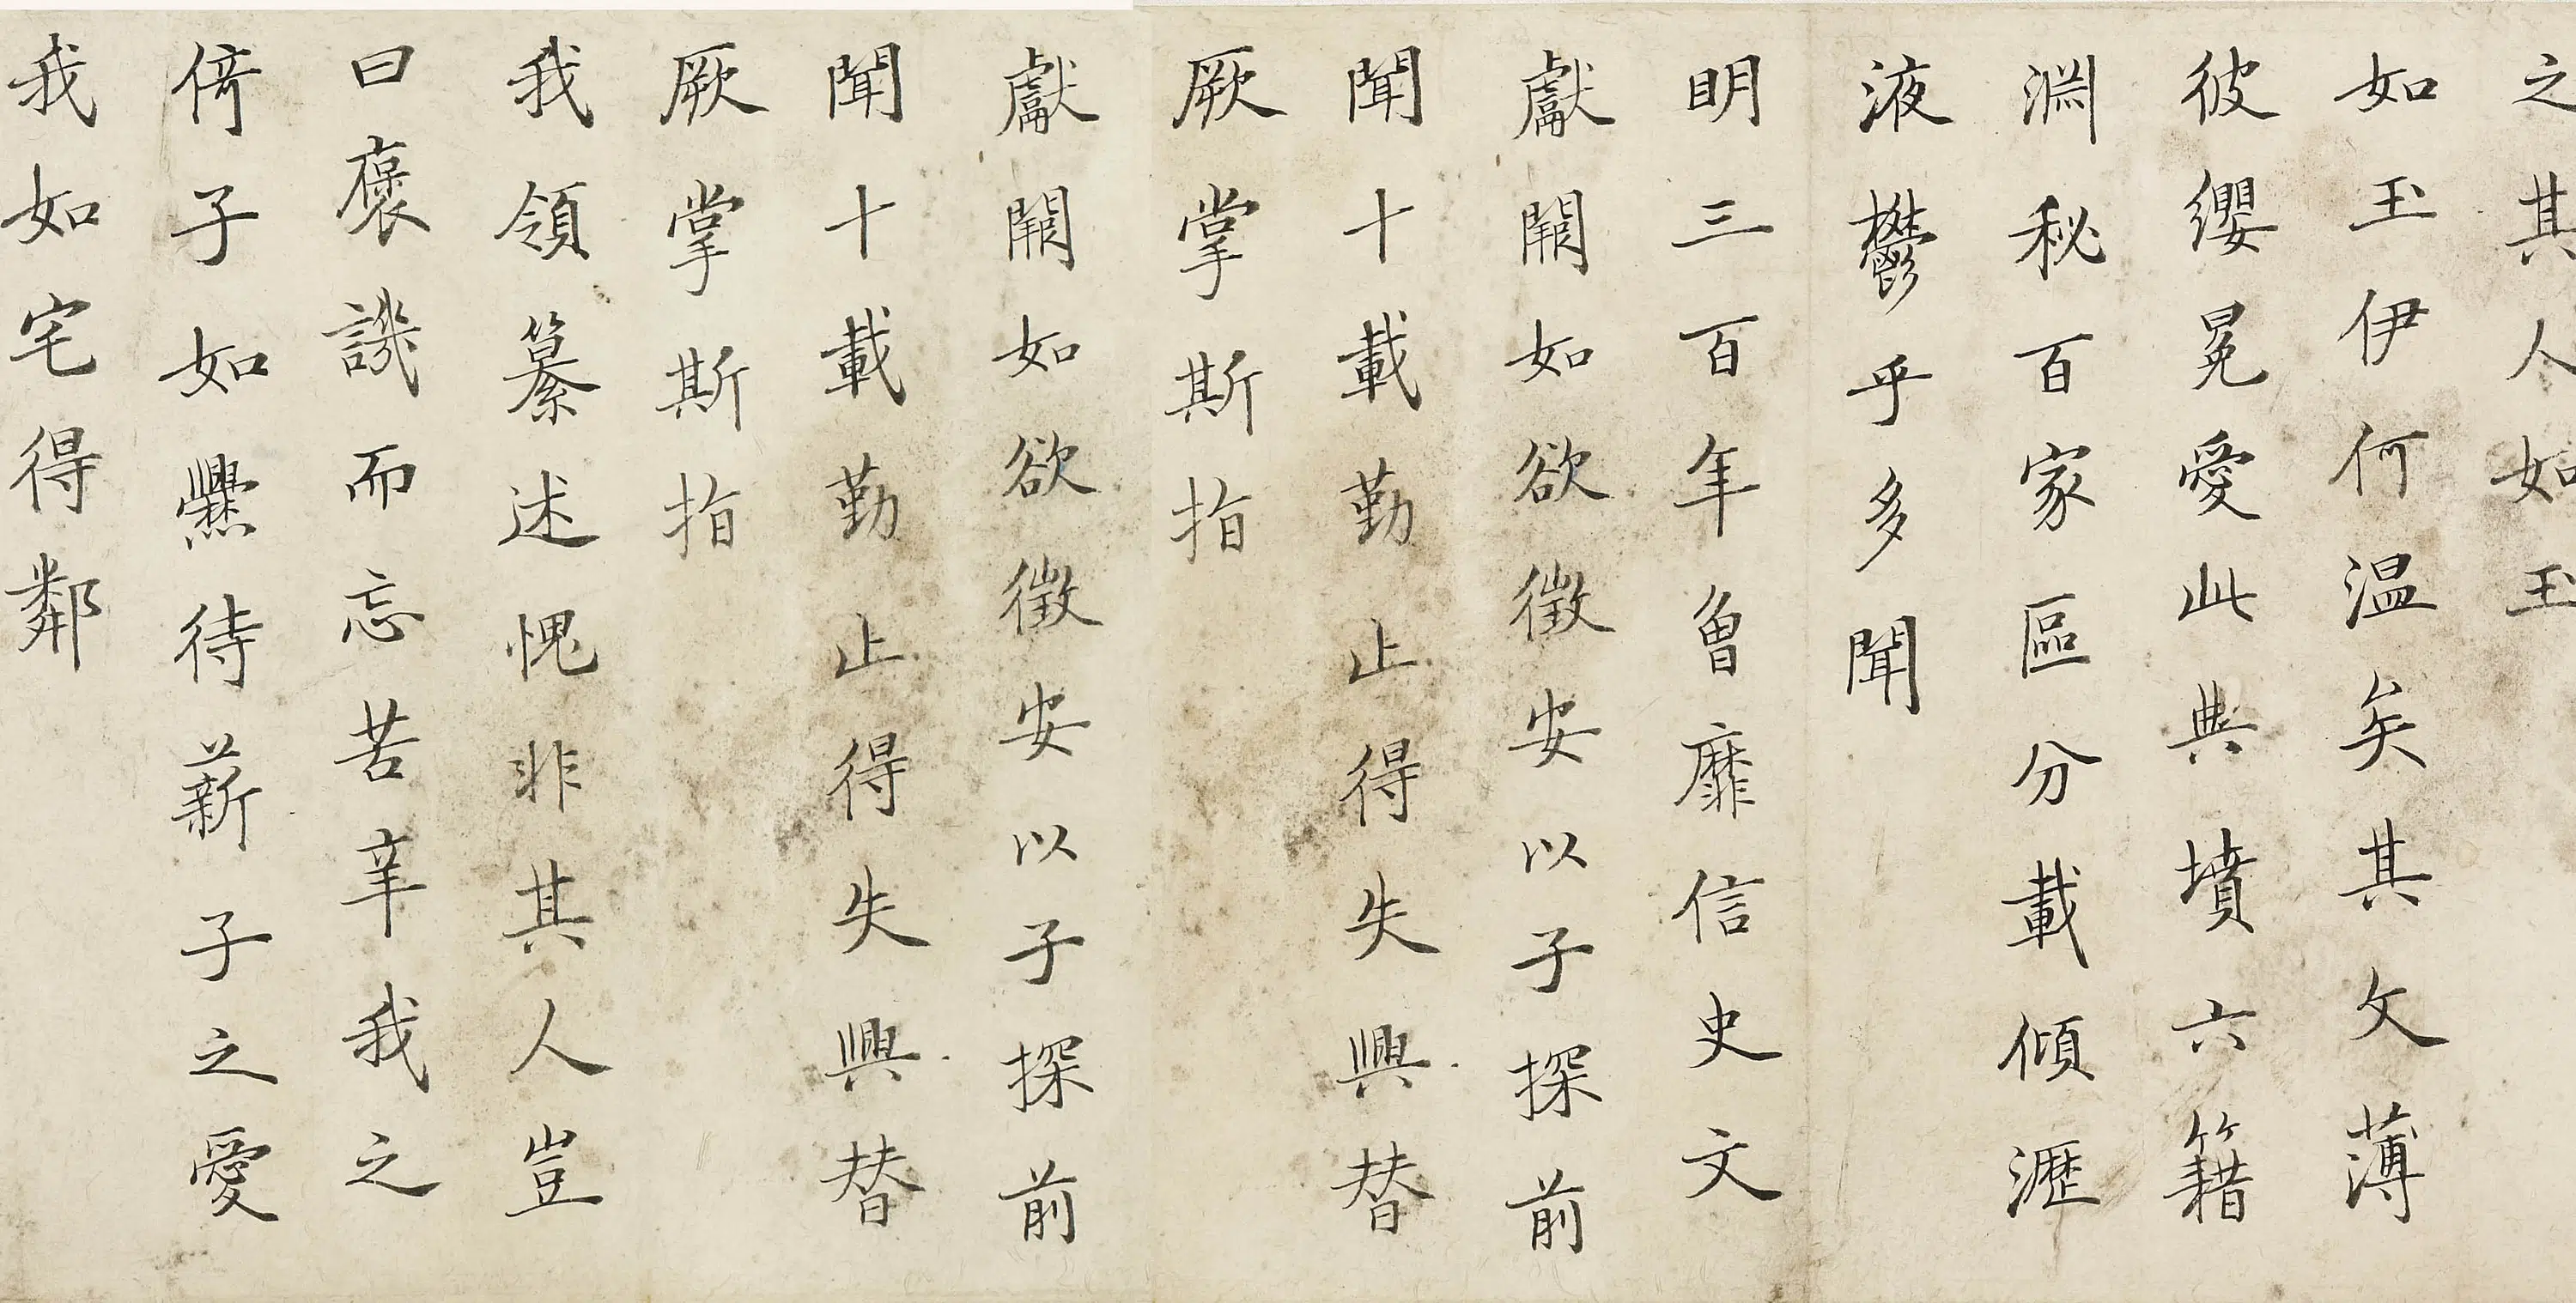 之其人如玉
如玉伊何温矣其文薄
彼纓冕愛此典墳六籍
淵秘百家區分載傾瀝
液鬱乎多聞
明三百年曾靡信史文
獻闕如欲徵安以子探前
聞十載勤止得失興替
厥掌斯指
獻闕如欲徵安以子探前
聞十載勤止得失興替
厥掌斯指
我領纂述愧非其人豈
曰褒譏而忘苦辛我之
倚子如爨待薪子之愛
我如宅得鄰